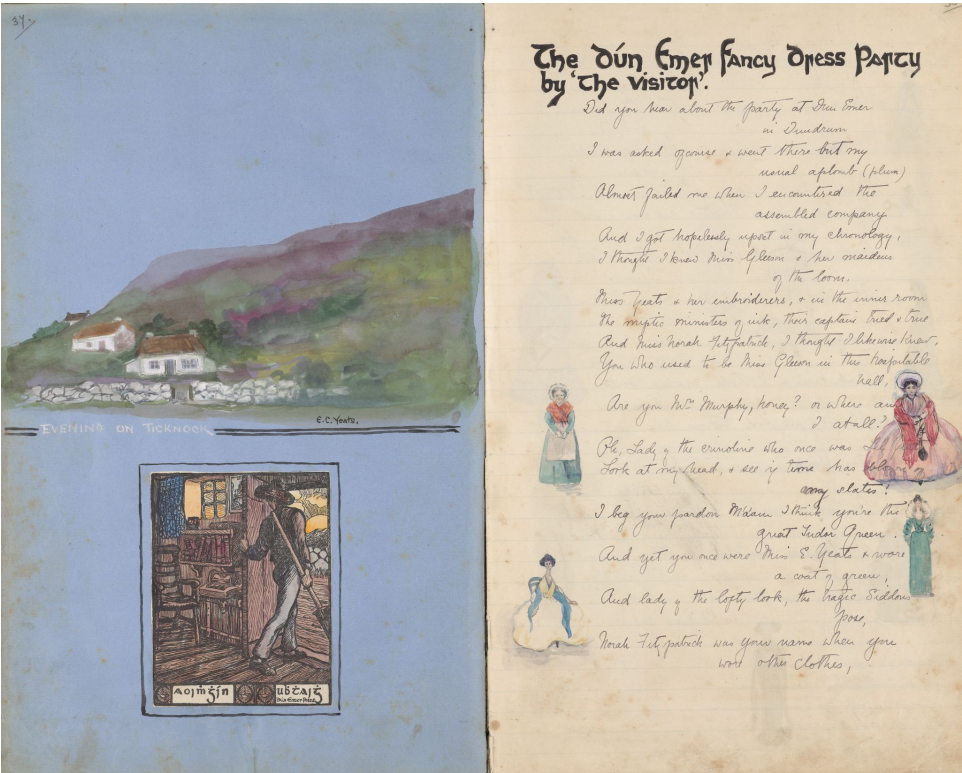 37.
E.C. Yeats.
EVENING ON TICKNOCK
Dun Emer Press
The Dún Emer Fancy Dress Party
by 'The Visitor'.
Did you hear about the party at Dun Emer
in Dundrum
I was asked of course & went there but my
usual aplomb (plum)
Almost failed me when I encountered the
assembled company
And I got hopelessly upset in my chronology,
I thought I knew Miss Gleeson & her maidens
of the loom.
Miss Yeats & her embroiderers, & in the inner room
The mystic ministers of ink, their captain tried & true
And Miss Norah Fitzpatrick, I thought I likewise knew,
You who used to be Miss Gleeson in this hospitable
hall,
Are you Mrs Murphy, honey? or where am
I at all?
Oh, Lady of the crinoline who once was
Look at my head, & see if time has
any slates!
I beg your pardon Ma'am I think you're the
great Tudor Queen.
And yet you once were Miss E. Yeats & wore
a coat of green,
And lady of the lofty look, the tragic Siddons
pose,
Norah Fitzpatrick was your name when you
wore other clothes,